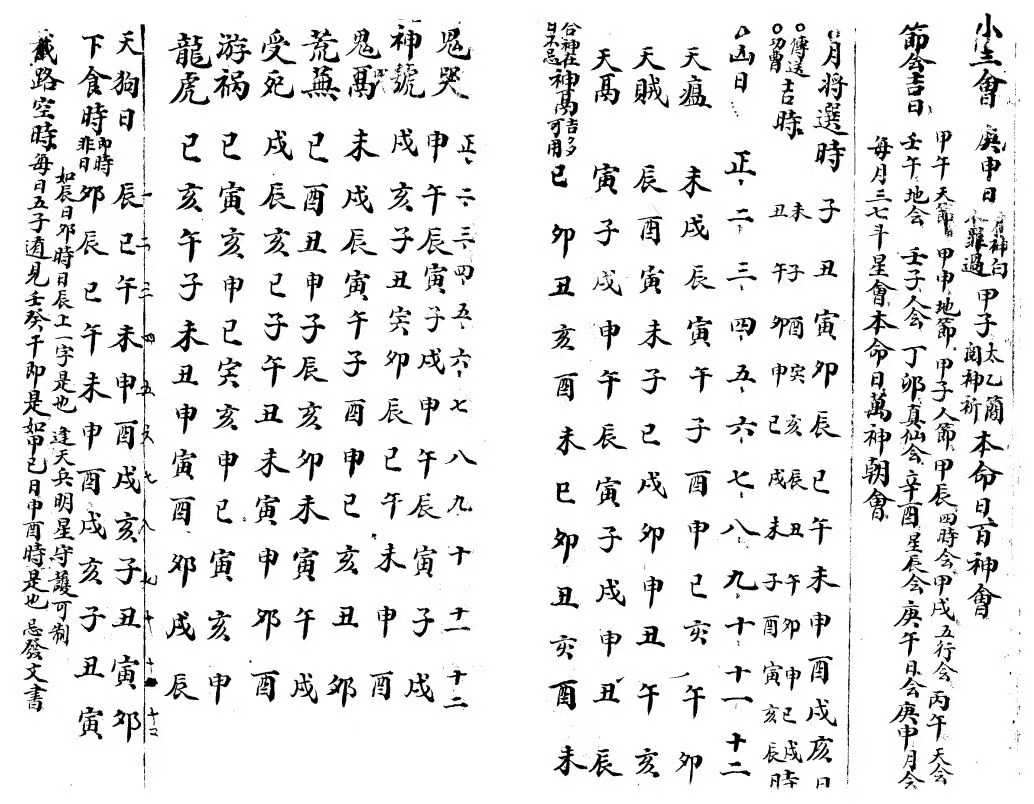 小三會 庚申日 甲子太乙簡閱神祈 本命日百神會
甲午天節 甲申地節 甲子人節 甲辰四時会 甲戌五行会 丙午天会
節会吉日 壬午地会 壬子人会 丁卯真仙会 辛酉星辰会 庚午日会 庚申月会
每月三七斗星會本命日萬神朝會
月將選時 子丑寅卯辰巳午未申酉戌亥日
○傳送 未子酉寅亥辰丑午卯申巳戌時
○功曹 吉時 丑午卯申巳戌未子酉寅亥辰時
凶日 正二三四五六七八九十十一十二
天瘟 未戌辰寅午子酉申巳亥午卯
天賊 辰酉寅未子巳戌卯申丑午亥
天鬲 寅子戌申午辰寅子戌申丑辰
合神在日不忌 神鬲吉多可用 巳卯丑亥酉未巳卯丑亥酉未
正二三四五六七八九十十一十二
鬼哭 申午辰寅子戌申午辰寅子戌
神號 戌亥子丑寅卯辰巳午未申酉
鬼鬲 未戌辰寅午子酉申巳亥丑卯
荒蕪 巳酉丑申子辰亥卯未寅午戌
受死 戌辰亥巳子午丑未寅申卯酉
游禍 巳寅亥申巳寅亥申巳寅亥申
龍虎 巳亥午子未丑申寅酉卯戌辰
一二三四五六七八九十十一十二
天狗日 辰巳午未申酉戌亥子丑寅卯
下食時 即時非日 卯辰巳午未申酉戌亥子丑寅
如辰日卯時日辰上一字是也 逢天兵明星守護可制
截路空時 每日五子遁見壬癸干即是如甲己日申酉時是也 忌發文書